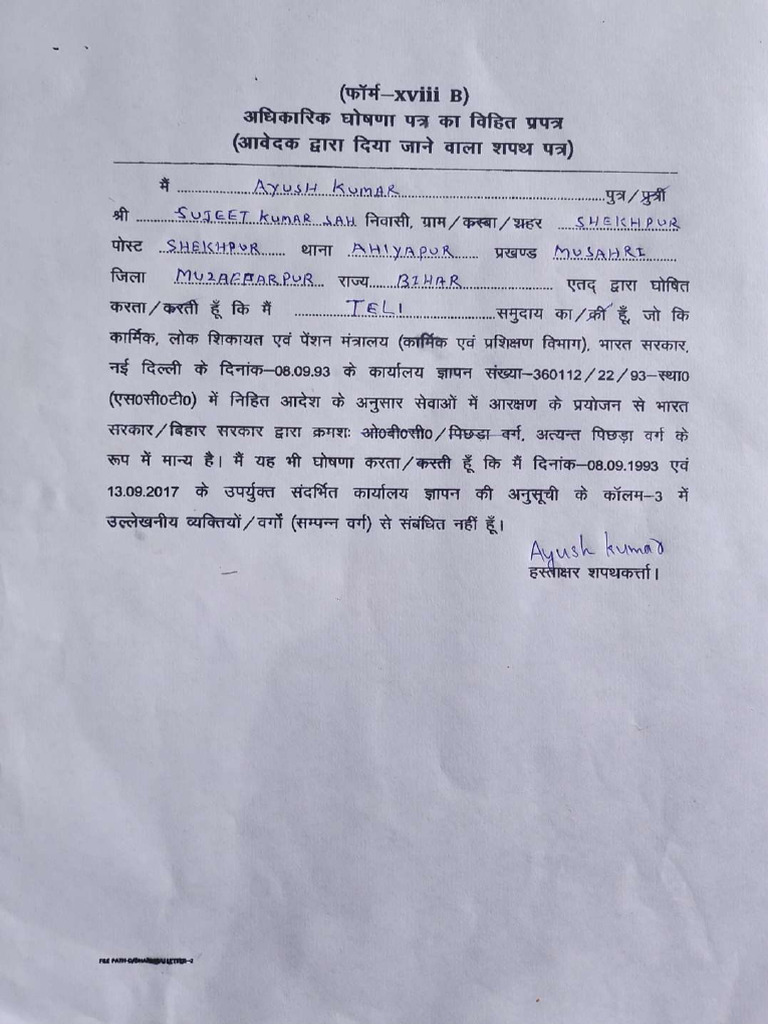 (फॉर्म–xviii B)
अधिकारिक घोषणा पत्र का विहित प्रपत्र
(आवेदक द्वारा दिया जाने वाला शपथ पत्र)
मैं ........ AYUSH KUMAR ........ पुत्र/पुत्री
श्री ........ SUJEET KUMAR SAH निवासी, ग्राम/कस्बा/शहर SHEKHPUR
पोस्ट SHEKHPUR थाना AHIYAPUR प्रखण्ड MUSAHRI
जिला MUZAFFARPUR राज्य BIHAR ........ एतद् द्वारा घोषित
करता/करती हूँ कि मैं ........ TELI ........ समुदाय का/की हूँ, जो कि
कार्मिक, लोक शिकायत एवं पेंशन मंत्रालय (कार्मिक एवं प्रशिक्षण विभाग), भारत सरकार,
नई दिल्ली के दिनांक–08.09.93 के कार्यालय ज्ञापन संख्या–360112/22/93–स्था0
(एस0सी0टी0) में निहित आदेश के अनुसार सेवाओं में आरक्षण के प्रयोजन से भारत
सरकार/बिहार सरकार द्वारा क्रमशः ओ0बी0सी0/पिछड़ा वर्ग, अत्यन्त पिछड़ा वर्ग के
रूप में मान्य है। मैं यह भी घोषणा करता/करती हूँ कि मैं दिनांक–08.09.1993 एवं
13.09.2017 के उपर्युक्त संदर्भित कार्यालय ज्ञापन की अनुसूची के कॉलम–3 में
उल्लेखनीय व्यक्तियों/वर्गों (सम्पन्न वर्ग) से संबंधित नहीं हूँ।
Ayush kumar
हस्ताक्षर शपथकर्त्ता।